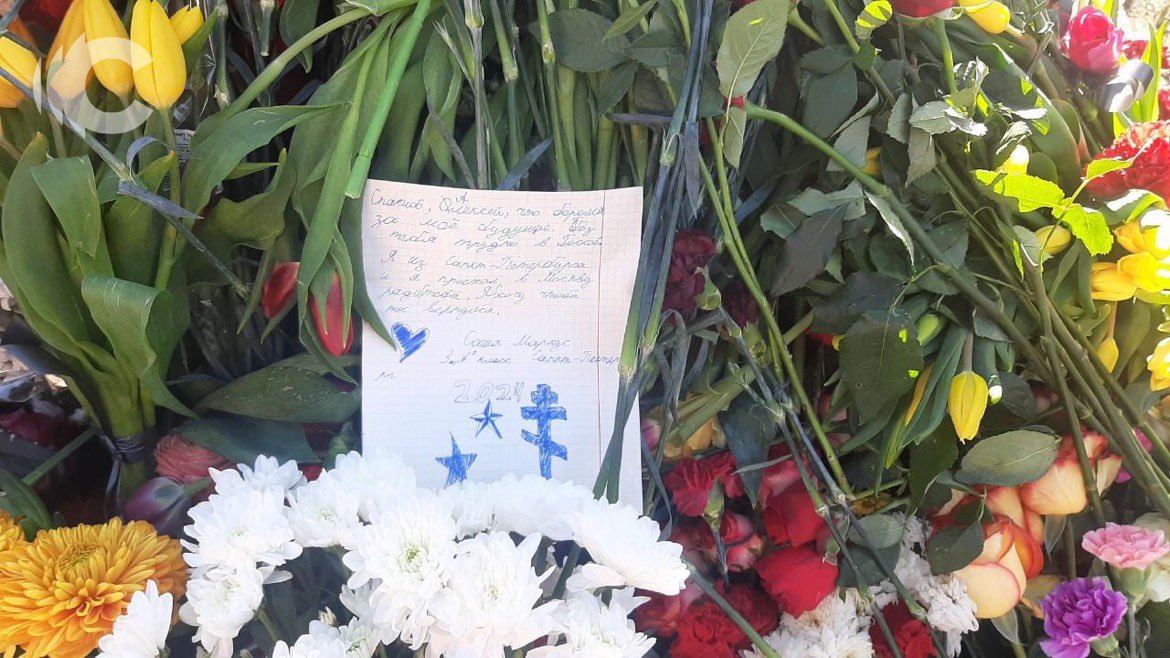 Спасибо, Алексей, что боролся
за моё будущее. Без
тебя трудно в России.
Я из Санкт-Петербурга
и я приехал в Москву
ради тебя. Я хочу чтобы
ты вернулся.
Саша Маркус
3 "А" класс Санкт-Петер
2024